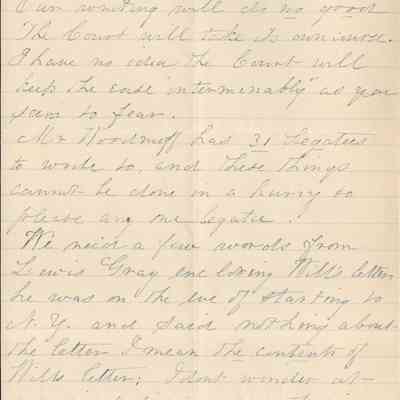 Our writing will do no good
The Court will take its own course.
I have no idea the Court will
keep the case "interminably" as you
seem to fear.
Mr Woodruff has 31 Legatees
to write to, and these things
cannot be done in a hurry to
please any one legatee.
We need a few words from
Lewis Gray enclosing Will's letter
he was on the eve of starting to
N.Y. and said nothing about
the letter I mean the contents of
Will's letter; I don't wonder at